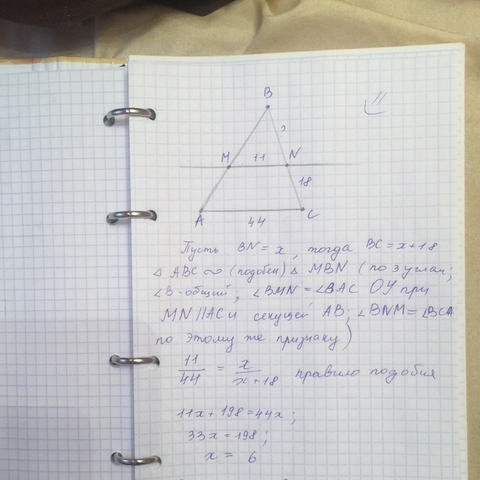 B
?
M 11 N
18
A 44 C
Пусть BN = x, тогда BC = x+18
Δ ABC ∞ (подобен) Δ MBN (по 3 углам;
∠B-общий, ∠BMN = ∠BAC ОУ при
MN || AC и секущей AB; ∠BNM = ∠BCA
по этому же признаку)
11/44 = x/x+18 правило подобия
11x + 198 = 44x;
33x = 198;
x = 6